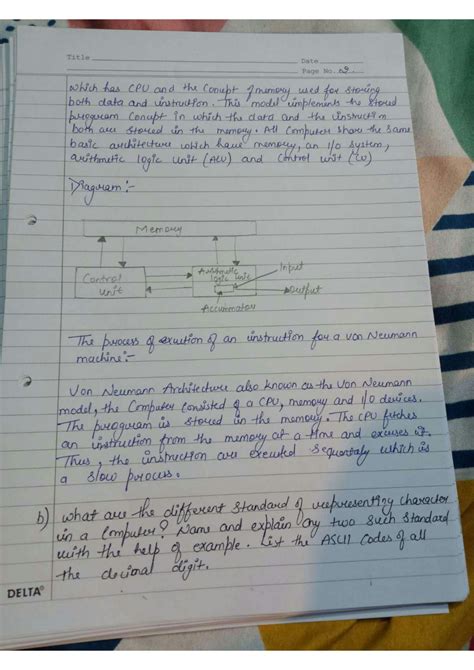 Title
Date
Page No. 2
which has CPU and the Conupt of memory used for storing
both data and instruction. This model implements the stored
program Conupt in which the data and the instruction
both are stored in the memory. All Computer share the same
basic architecture which have memory, an I/O system,
arithmetic logic unit (ALU) and Control unit (CU)
Diagram:-
Memory
Control
Unit
Arithmetic
logic unit
Input
Output
Accumulator
The process of exicution of an instruction for a von Neumann
machine:-
Von Neumann Architecture also known as the Von Neumann
model, the Computer consisted of a CPU, memory and I/O devices.
The program is stored in the memory. The CPU fetches
an instruction from the memory at a time and excuses it.
Thus, the instruction are executed sequentaly which is
a slow process.
b) what are the different standard of representing character
in a Computer? Name and explain any two such standard
with the help of example. List the ASCII Codes of all
the decimal digit.
DELTA